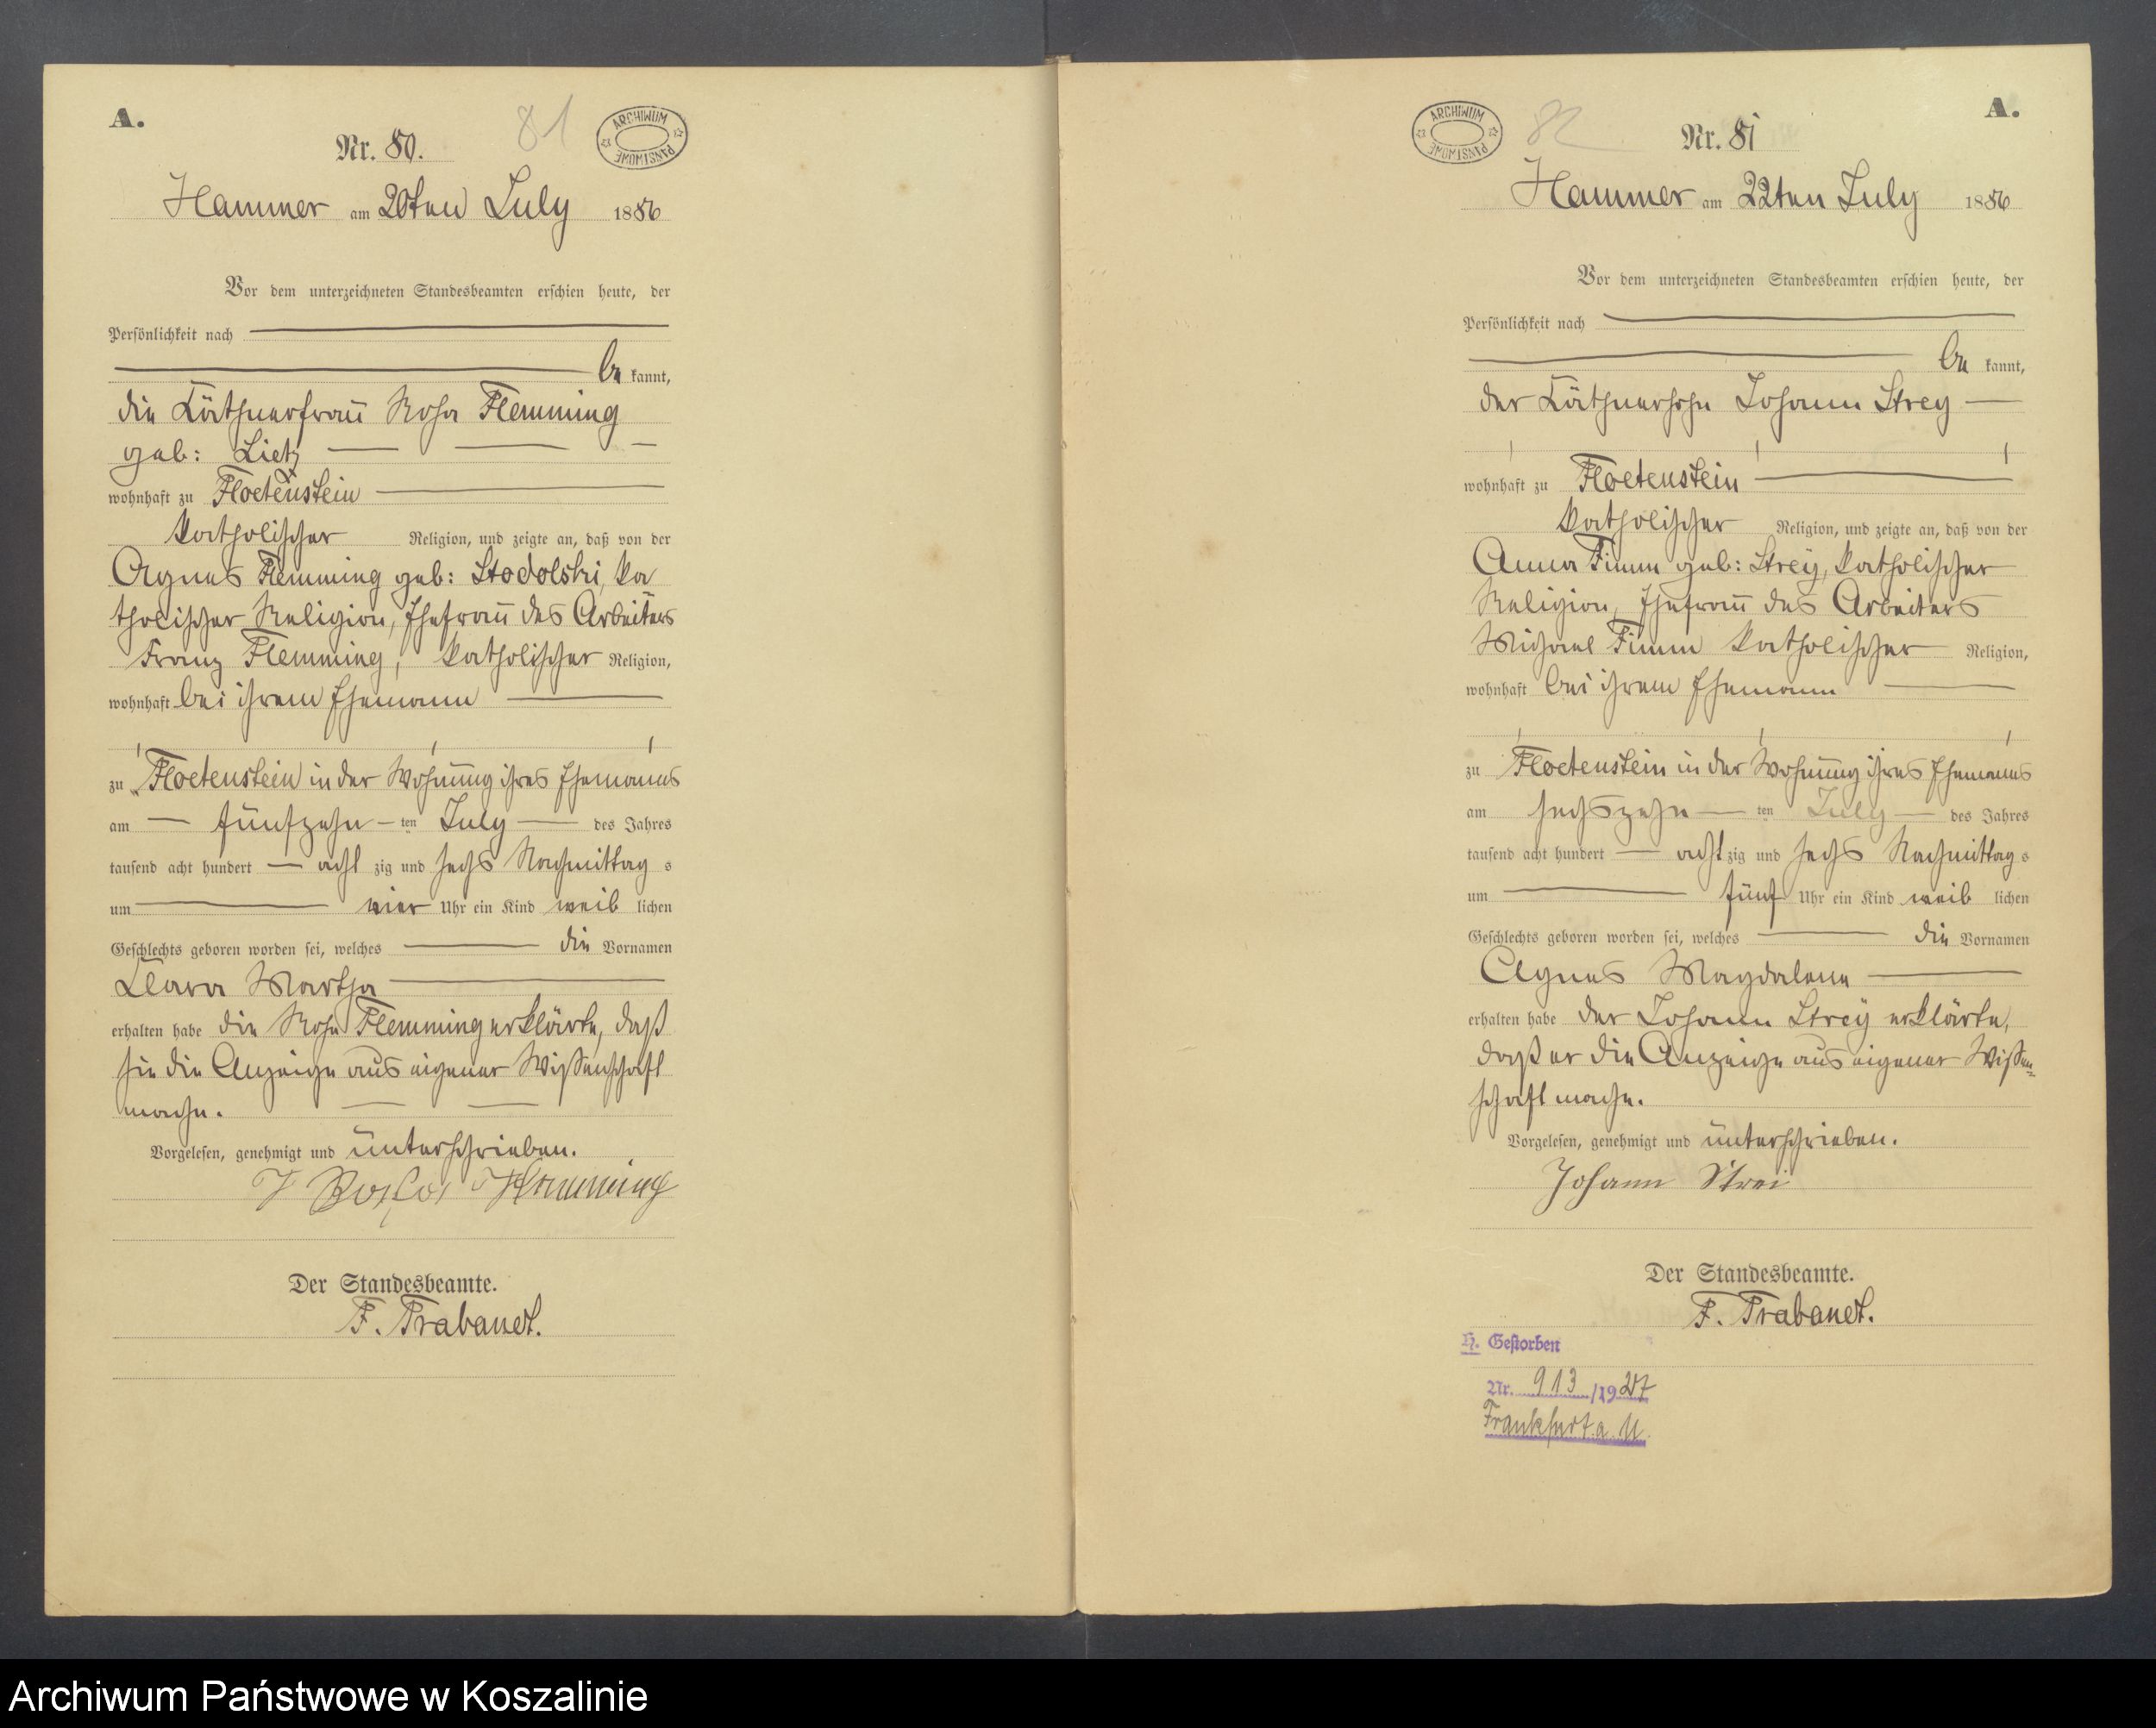 A.
81
ARCHIWUM PAŃSTWOWE
Nr. 80.
Hammer am 20ten July 1886
Vor dem unterzeichneten Standesbeamten erschien heute, der
Persönlichkeit nach
be kannt,
die Käthnerfrau Rosa Flemming
geb: Lietz
wohnhaft zu Floetenstein
katholischer Religion, und zeigte an, daß von der
Agnes Flemming geb: Stodolski, ka
tholischer Religion, Ehefrau des Arbeiters
Franz Flemming, katholischer Religion,
wohnhaft bei ihrem Ehemann
zu Floetenstein in der Wohnung ihres Ehemanns
am fünfzehn ten July des Jahres
tausend acht hundert acht zig und sechs Nachmittag s
um vier Uhr ein Kind weib lichen
Geschlechts geboren worden sei, welches die Vornamen
Clara Martha
erhalten habe die Rosa Flemming erklärte, daß
sie die Anzeige aus eigener Wissenschaft
mache.
Vorgelesen, genehmigt und unterschrieben.
Rosa Flemming
Der Standesbeamte.
F. Trabandt.
A.
82
ARCHIWUM PAŃSTWOWE
Nr. 81
Hammer am 22ten July 1886
Vor dem unterzeichneten Standesbeamten erschien heute, der
Persönlichkeit nach
be kannt,
der Käthnersohn Johann Strey
wohnhaft zu Floetenstein
katholischer Religion, und zeigte an, daß von der
Anna Timm geb: Strey, katholischer
Religion, Ehefrau des Arbeiters
Michael Timm katholischer Religion,
wohnhaft bei ihrem Ehemann
zu Floetenstein in der Wohnung ihres Ehemanns
am sechszehn ten July des Jahres
tausend acht hundert acht zig und sechs Nachmittag s
um fünf Uhr ein Kind weib lichen
Geschlechts geboren worden sei, welches die Vornamen
Agnes Magdalena
erhalten habe der Johann Strey erklärte,
daß er die Anzeige aus eigener Wissen=
schaft mache.
Vorgelesen, genehmigt und unterschrieben.
Johann Strei
Der Standesbeamte.
F. Trabandt.
H. Gestorben
Nr. 913 /1927
Frankfurt a. M.
Archiwum Państwowe w Koszalinie